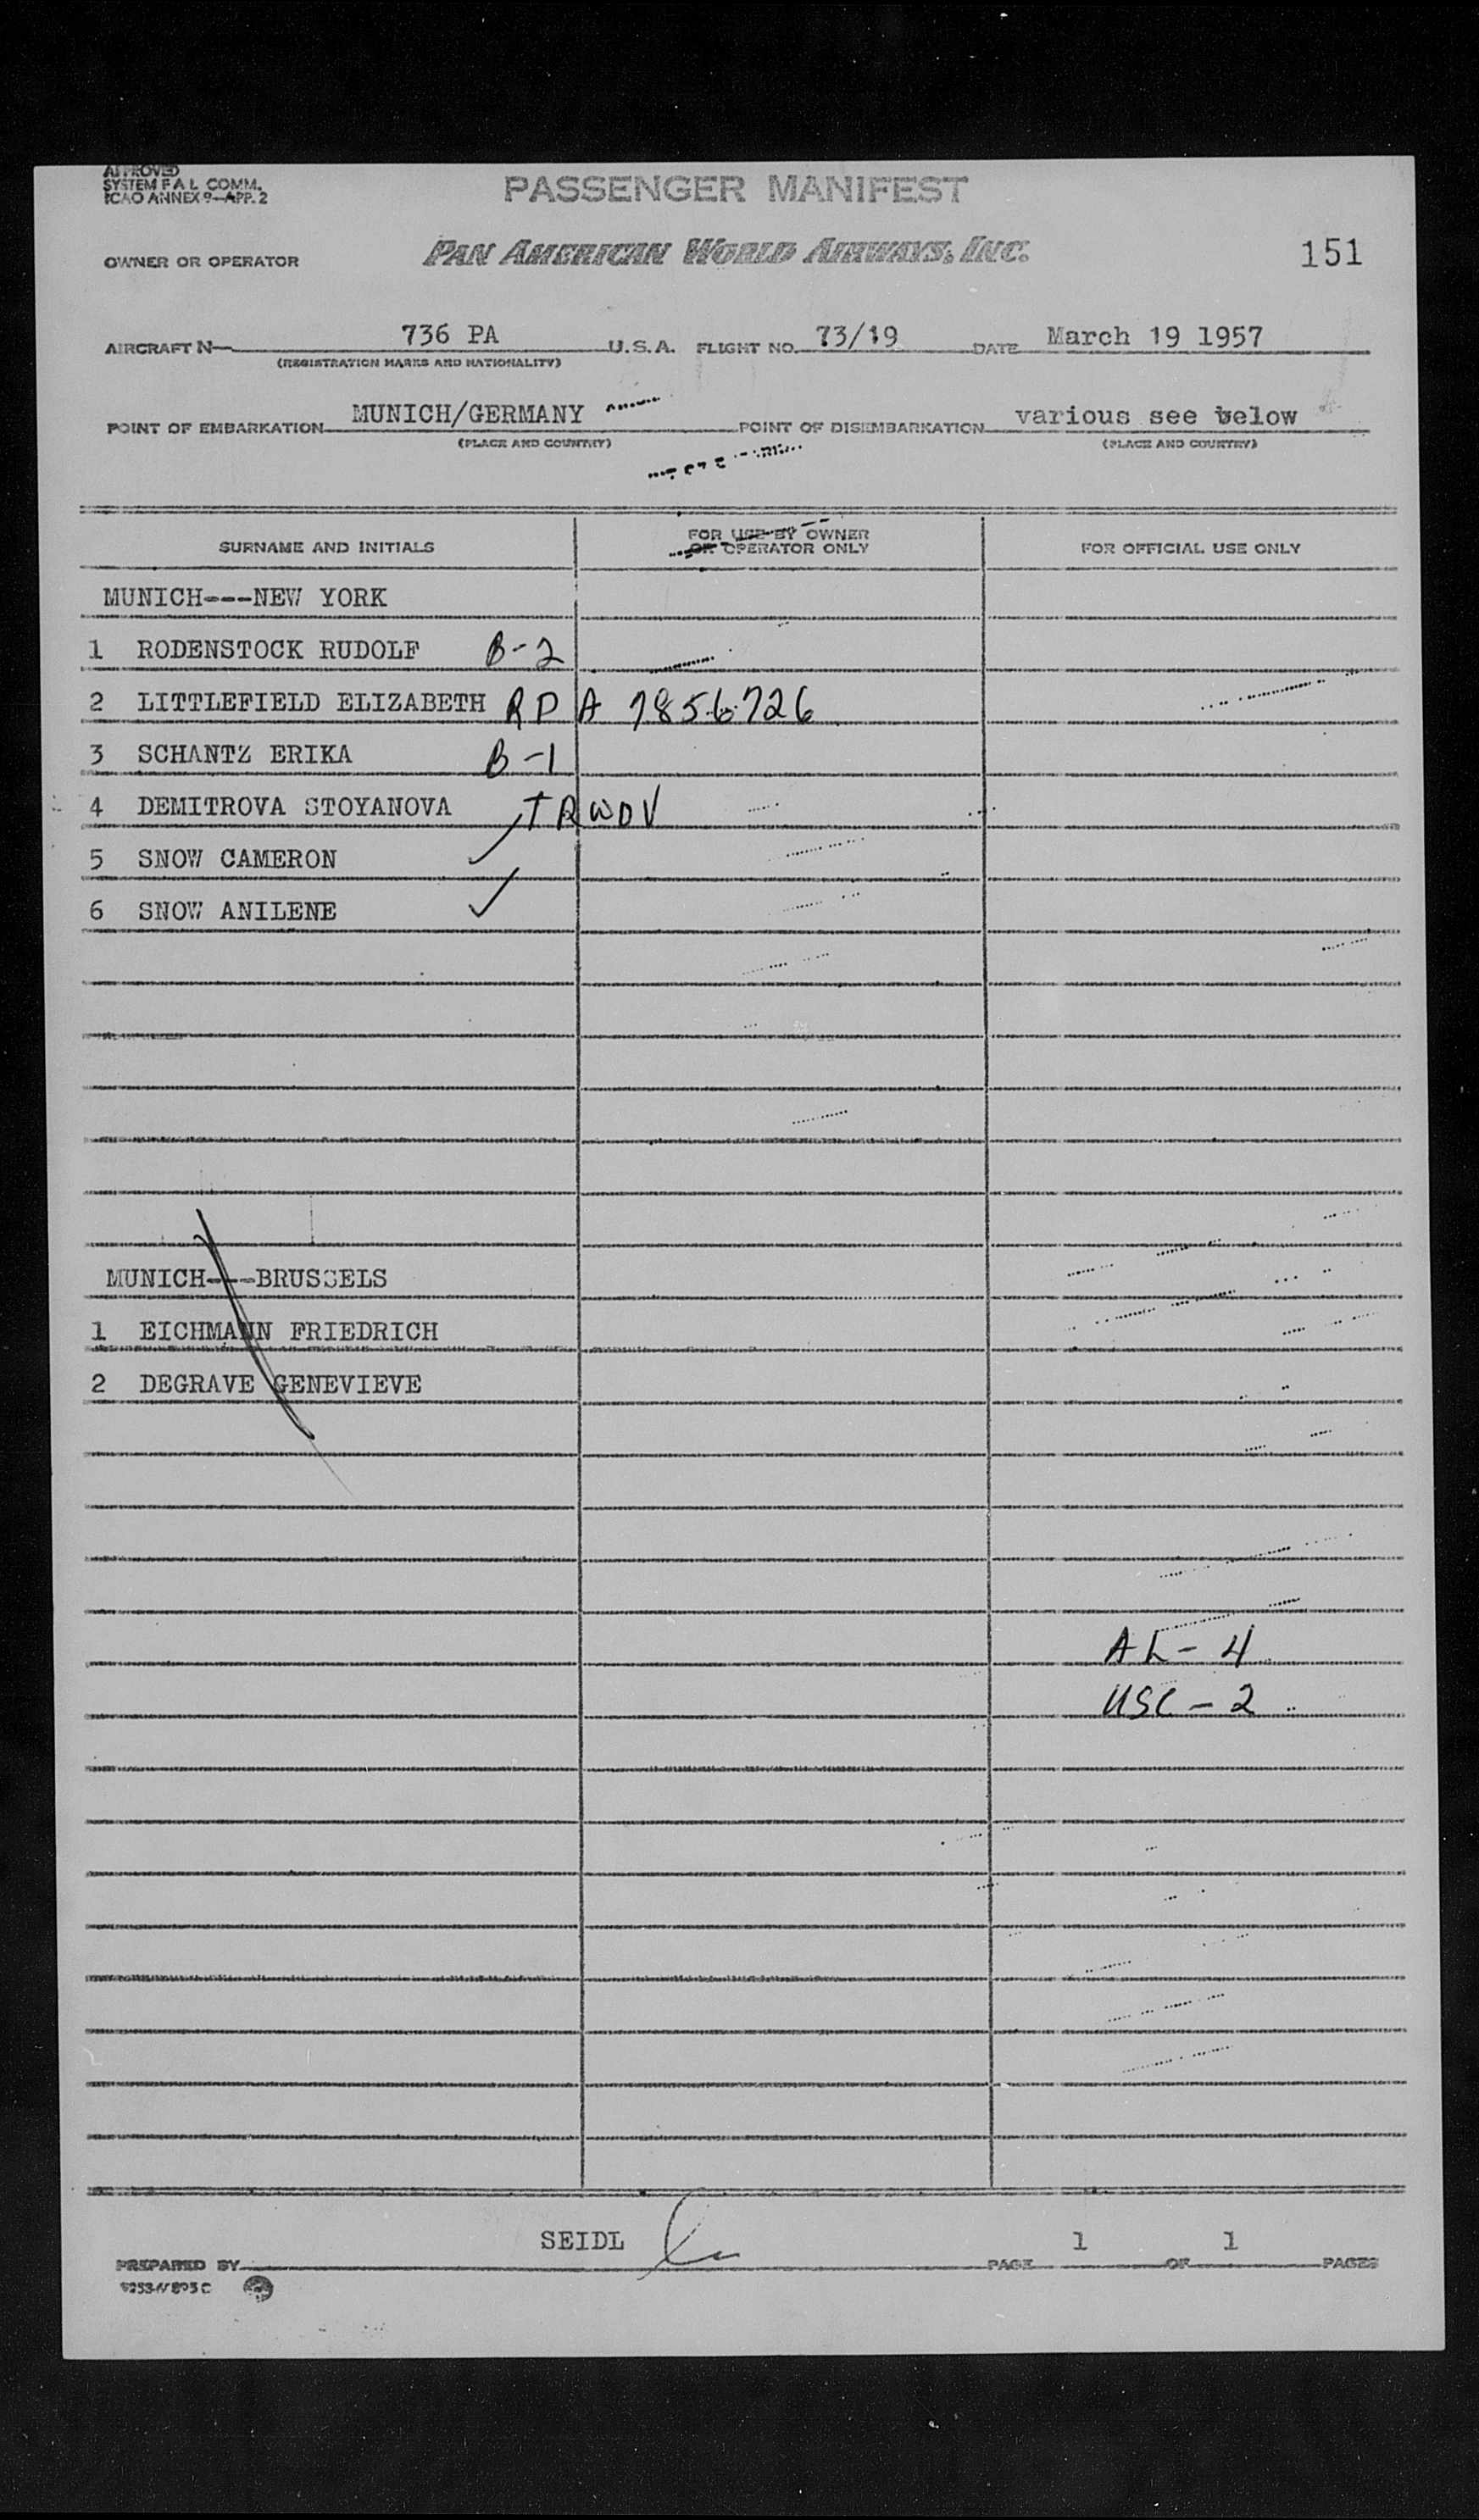 APPROVED
SYSTEM F A L COMM.
ICAO ANNEX 9-APP. 2
PASSENGER MANIFEST
OWNER OR OPERATOR PAN AMERICAN WORLD AIRWAYS, INC. 151
AIRCRAFT N— 736 PA U.S.A. FLIGHT NO. 73/19 DATE March 19 1957
(REGISTRATION MARKS AND NATIONALITY)
POINT OF EMBARKATION MUNICH/GERMANY POINT OF DISEMBARKATION various see below
(PLACE AND COUNTRY) (PLACE AND COUNTRY)
SURNAME AND INITIALS FOR USE BY OWNER OR OPERATOR ONLY FOR OFFICIAL USE ONLY
MUNICH---NEW YORK
1 RODENSTOCK RUDOLF B-2
2 LITTLEFIELD ELIZABETH RP A 7856726
3 SCHANTZ ERIKA B-1
4 DEMITROVA STOYANOVA TRWOV
5 SNOW CAMERON ✓
6 SNOW ANILENE ✓
MUNICH---BRUSSELS
1 EICHMANN FRIEDRICH
2 DEGRAVE GENEVIEVE
AL - 4
USC - 2
PREPARED BY SEIDL PAGE 1 OF 1 PAGES